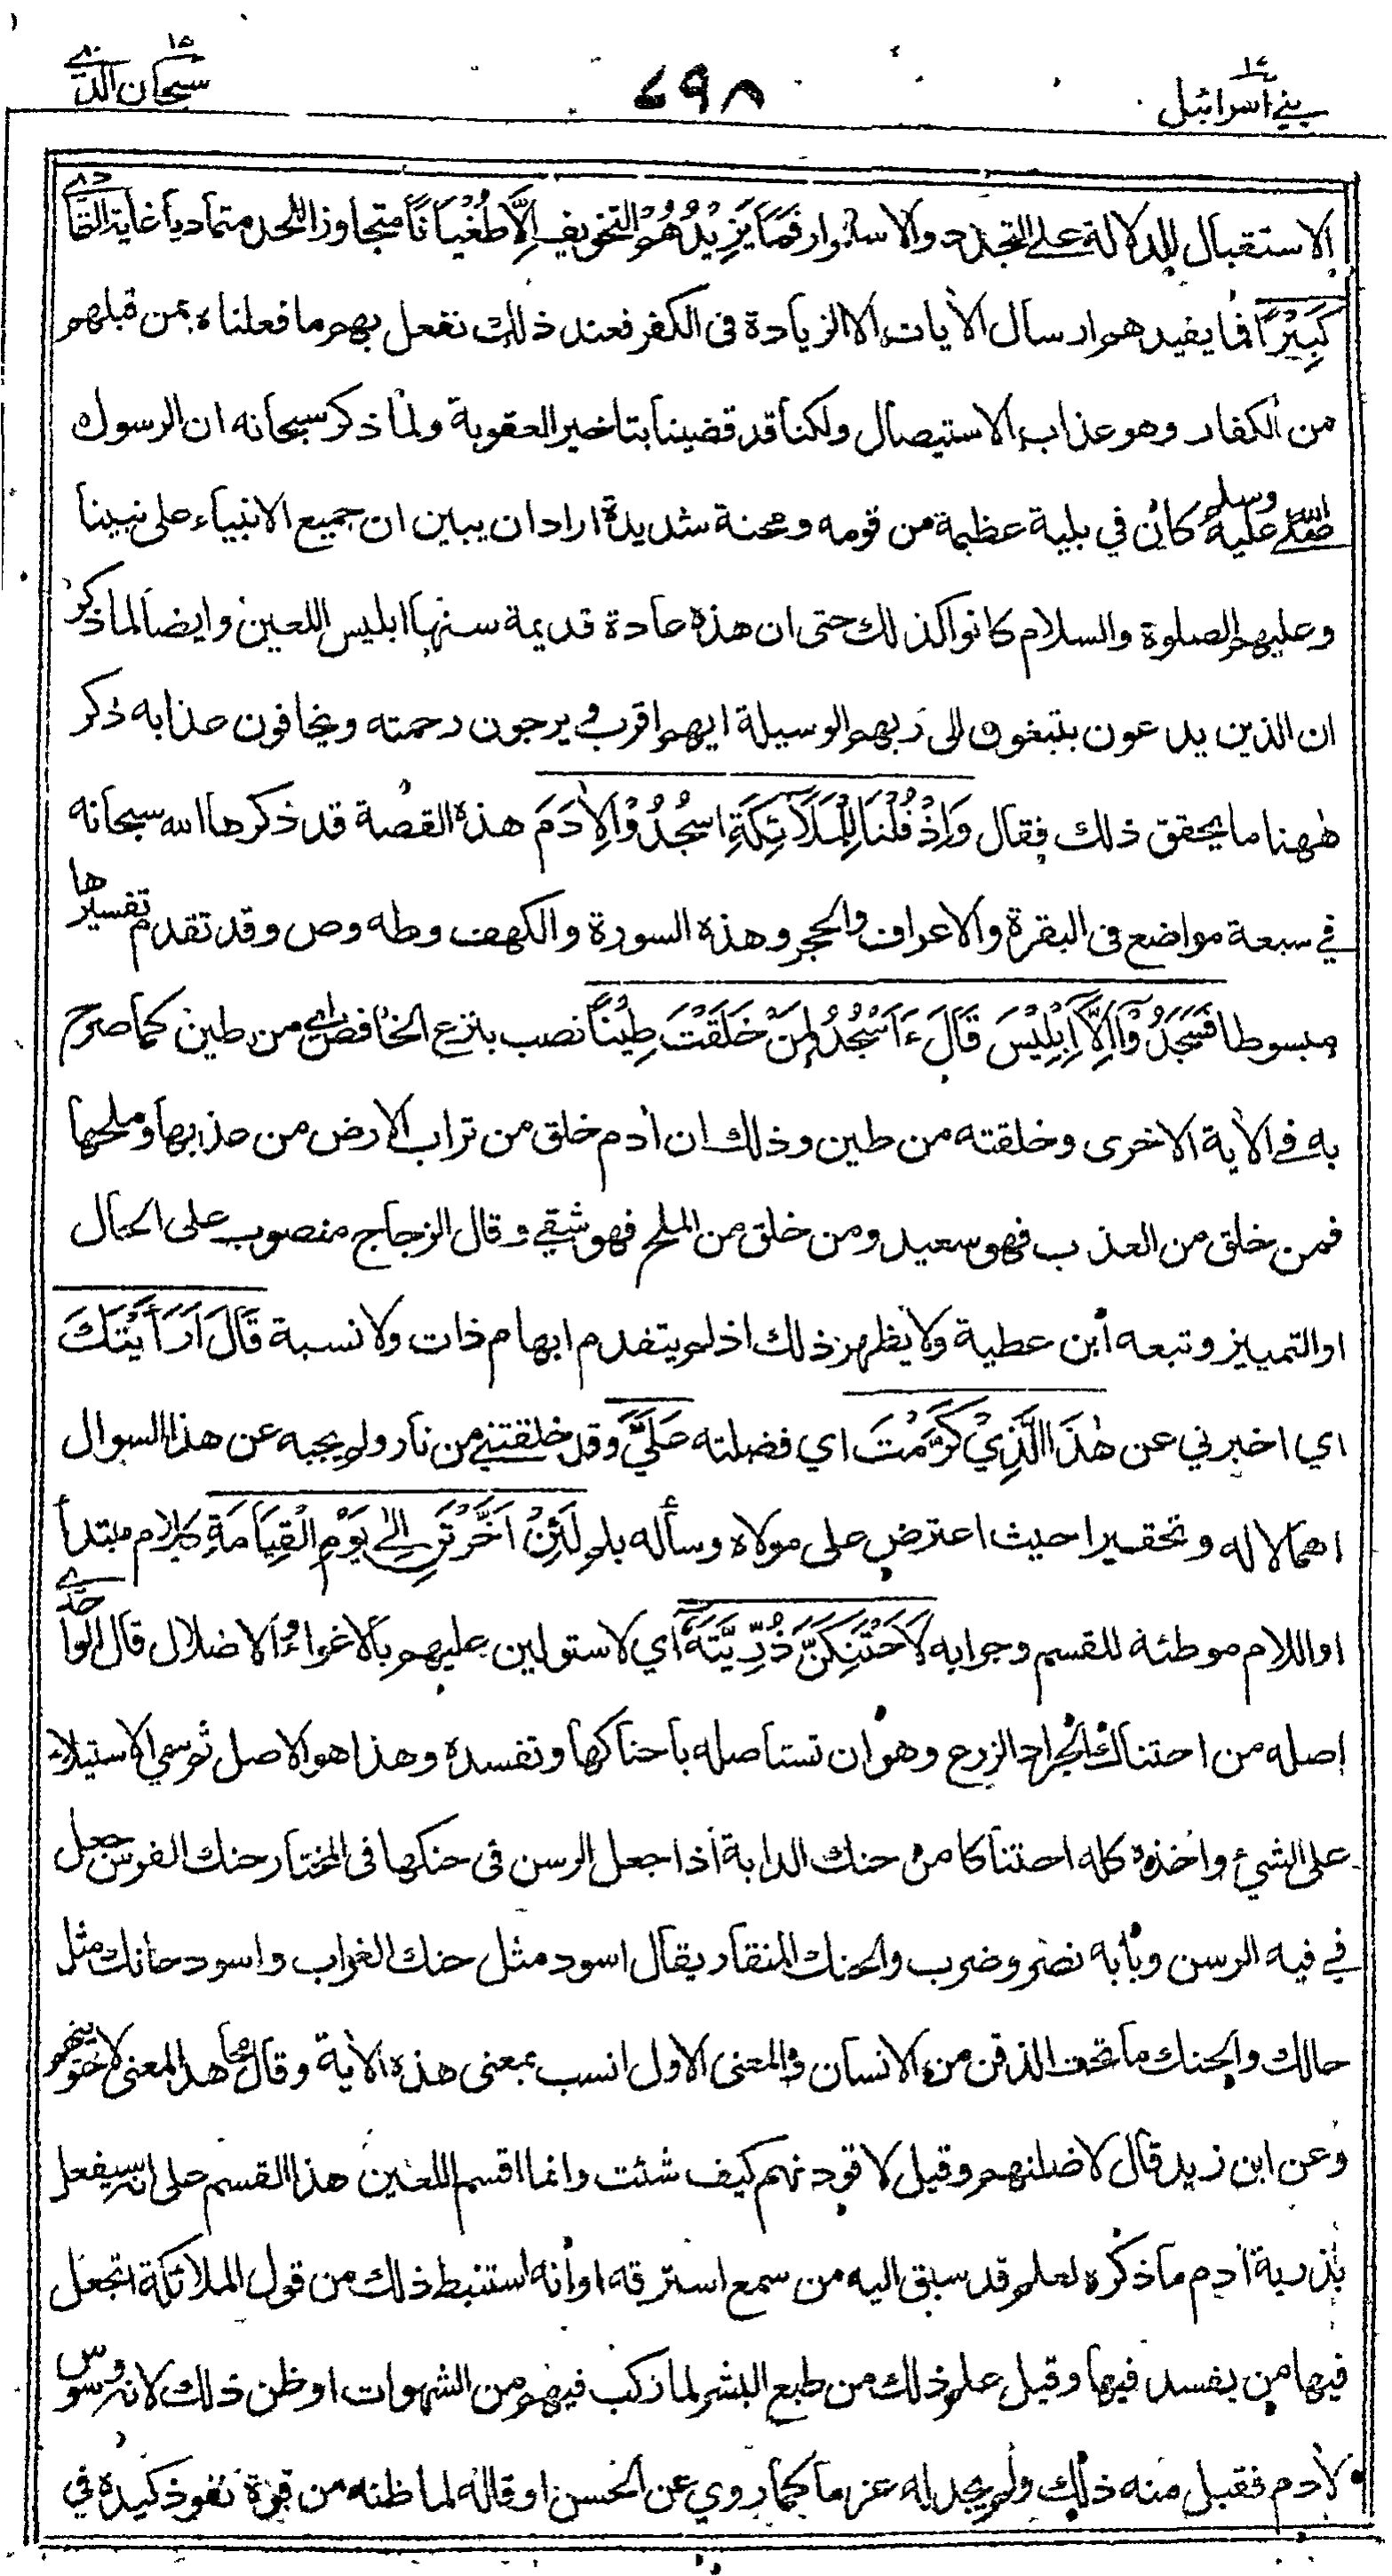 بني اسرائيل ١٧
٦٩٨
سبحان الذي ١٥
الاستقبال للدلالة على التجدد والاستمرار فَمَا يَزِيْدُهُمْ التخويف اِلَّا طُغْيَانًا متجاوزا للحد متماديا غاية التمادي
كَبِيْرًا فما يفيدهم ارسال الاٰيات الا الزيادة فى الكفر فعند ذلك نفعل بهم ما فعلناه بمن قبلهم
من الكفار وهو عذاب الاستيصال ولكنا قد قضينا بتاخير العقوبة ولما ذكر سبحانه ان الرسول
صلى الله عليه وسلم كان في بلية عظيمة من قومه ومحنة شديدة اراد ان يبين ان جميع الانبياء على نبينا
وعليهم الصلوة والسلام كانوا كذلك حتى ان هذه عادة قديمة سنها ابليس اللعين وايضا لما ذكر
ان الذين يدعون يبتغون الى ربهم الوسيلة ايهم اقرب ويرجون رحمته ويخافون عذابه ذكر
ههنا ما يحقق ذلك فقال وَاِذْ قُلْنَا لِلْمَلَآئِكَةِ اسْجُدُوْا لِاٰدَمَ هذه القصة قد ذكرها الله سبحانه
في سبعة مواضع فى البقرة والاعراف والحجر وهذه السورة والكهف وطه وص وقد تقدم تفسيرها
مبسوطا فَسَجَدُوْٓا اِلَّآ اِبْلِيْسَ قَالَ ءَاَسْجُدُ لِمَنْ خَلَقْتَ طِيْنًا نصب بنزع الخافض اي من طين كما صرح
به في الاٰية الاخرى وخلقته من طين وذلك ان اٰدم خلق من تراب الارض من عذبها وملحها
فمن خلق من العذب فهو سعيد ومن خلق من الملح فهو شقي وقال الزجاج منصوب على الحال
او التمييز وتبعه ابن عطية ولا يظهر ذلك اذ لم يتقدم ابهام ذات ولا نسبة قَالَ اَرَاَيْتَكَ
اي اخبرني عن هٰذَا الَّذِيْ كَرَّمْتَ اي فضلته عَلَيَّ وقد خلقتني من نار ولم يجبه عن هذا السوال
اهمالا له وتحقيرا حيث اعترض على مولاه وسأله بلم لَئِنْ اَخَّرْتَنِ اِلٰى يَوْمِ الْقِيَامَةِ كلام مبتدأ
او اللام موطئة للقسم وجوابه لَاَحْتَنِكَنَّ ذُرِّيَّتَهٗٓ اي لاستولين عليهم بالاغواء والاضلال قال الواحدي
اصله من احتناك الجراد الزرع وهو ان تستاصله باحناكها وتفسده وهذا هو الاصل ثم سمي الاستيلاء
على الشيء واخذه كله احتناكا من حنك الدابة اذا جعل الرسن في حنكها فى المختار حنك الفرس جعل
في فيه الرسن وبابه نصر وضرب والحنك المنقار يقال اسود مثل حنك الغراب واسود حانك مثل
حالك والحنك ما تحت الذقن من الانسان والمعنى الاول انسب بمعنى هذه الاٰية وقال مجاهد المعنى لاحتوينهم
وعن ابن زيد قال لاضلنهم وقيل لاقودنهم كيف شئت وانما اقسم اللعين هذا القسم على انه سيفعل
بذرية اٰدم ما ذكره لعلم قد سبق اليه من سمع استرقه او انه استنبط ذلك من قول الملائكة اتجعل
فيها من يفسد فيها وقيل علم ذلك من طبع البشر لما ركب فيهم من الشهوات او ظن ذلك لانه وسوس
لاٰدم فقبل منه ذلك ولم يجد له عزما كما روي عن الحسن او قاله لما ظنه من قوة نفوذ كيده في